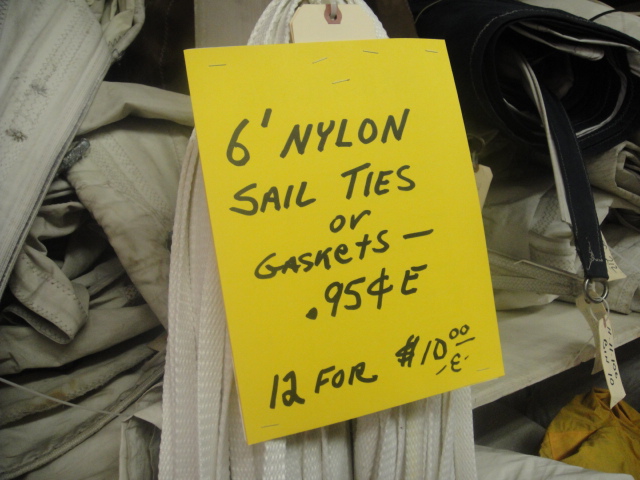 6' NYLON
SAIL TIES
or
GASKETS —
.95¢ E
12 FOR $10.00